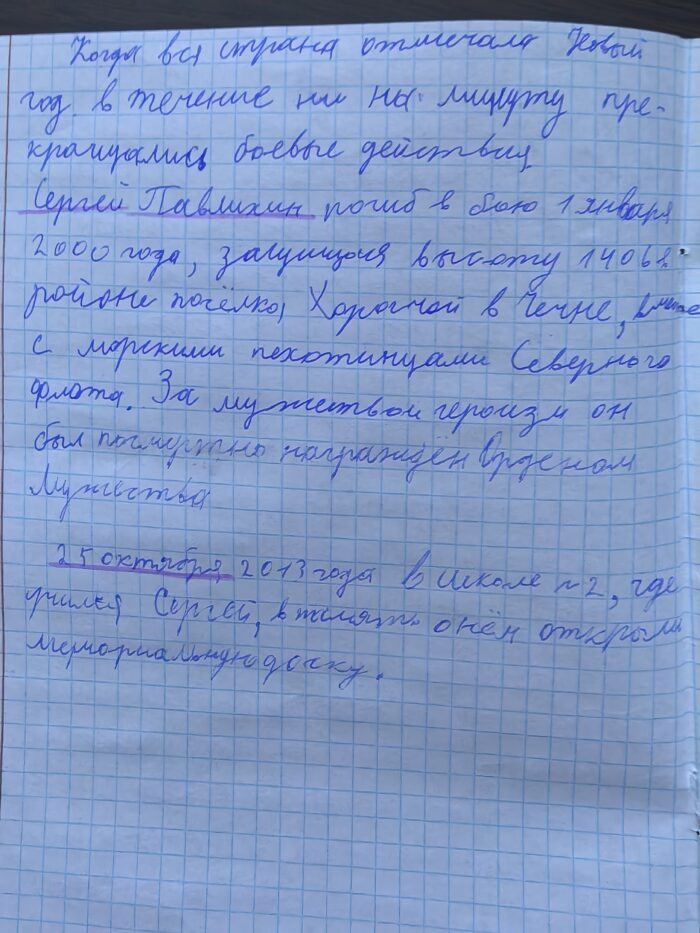 Когда вся страна отмечала Новый
год. в течение ни на минуту пре-
кращались боевые действия
Сергей Павлихин погиб в бою 1 января
2000 года, защищая высоту 1406 в
районе посёлка Харачой в Чечне, вместе
с морскими пехотинцами Северного
флота. За мужество и героизм он
был посмертно награждён Орденом
Мужества
25 октября 2013 года в школе №2, где
учился Сергей, в память о нём открыли
мемориальную доску.